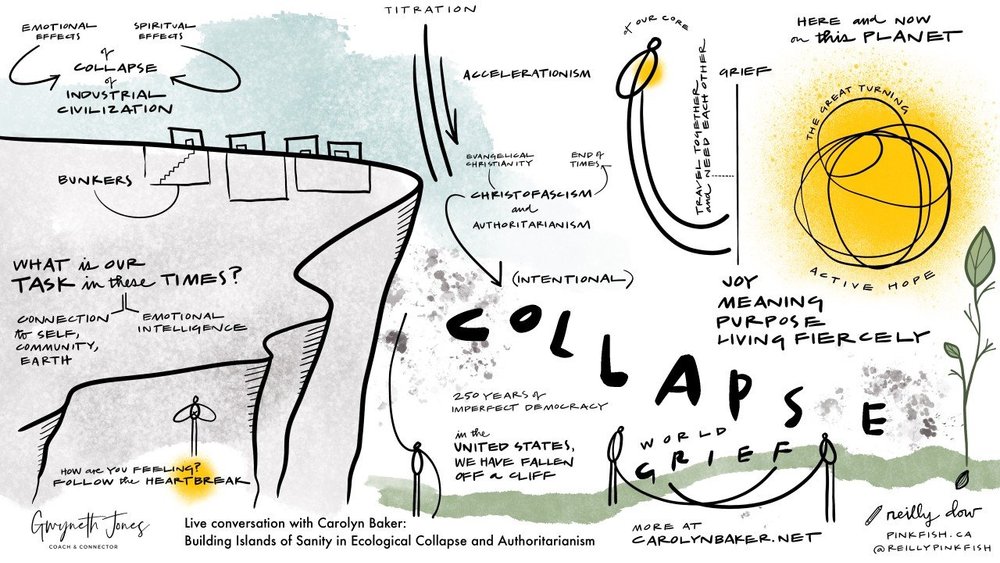 EMOTIONAL
EFFECTS
SPIRITUAL
EFFECTS
of
COLLAPSE
of
INDUSTRIAL
CIVILIZATION
BUNKERS
WHAT is OUR
TASK in these TIMES?
CONNECTION
to SELF,
COMMUNITY,
EARTH
EMOTIONAL
INTELLIGENCE
HOW are YOU FEELING?
FOLLOW the HEARTBREAK
TITRATION
ACCELERATIONISM
EVANGELICAL
CHRISTIANITY
END of
TIMES
CHRISTOFASCISM
and
AUTHORITARIANISM
(INTENTIONAL)
COLLAPSE
250 YEARS of
IMPERFECT DEMOCRACY
in the
UNITED STATES,
WE HAVE FALLEN
OFF a CLIFF
WORLD
GRIEF
of OUR CORE
TRAVEL TOGETHER
and NEED EACH OTHER
GRIEF
JOY
MEANING
PURPOSE
LIVING FIERCELY
HERE and NOW
on this PLANET
THE GREAT TURNING
ACTIVE HOPE
Gwyneth Jones
COACH & CONNECTOR
Live conversation with Carolyn Baker:
Building Islands of Sanity in Ecological Collapse and Authoritarianism
MORE AT
CAROLYNBAKER.NET
reilly dow
PINKFISH.CA
@REILLYPINKFISH